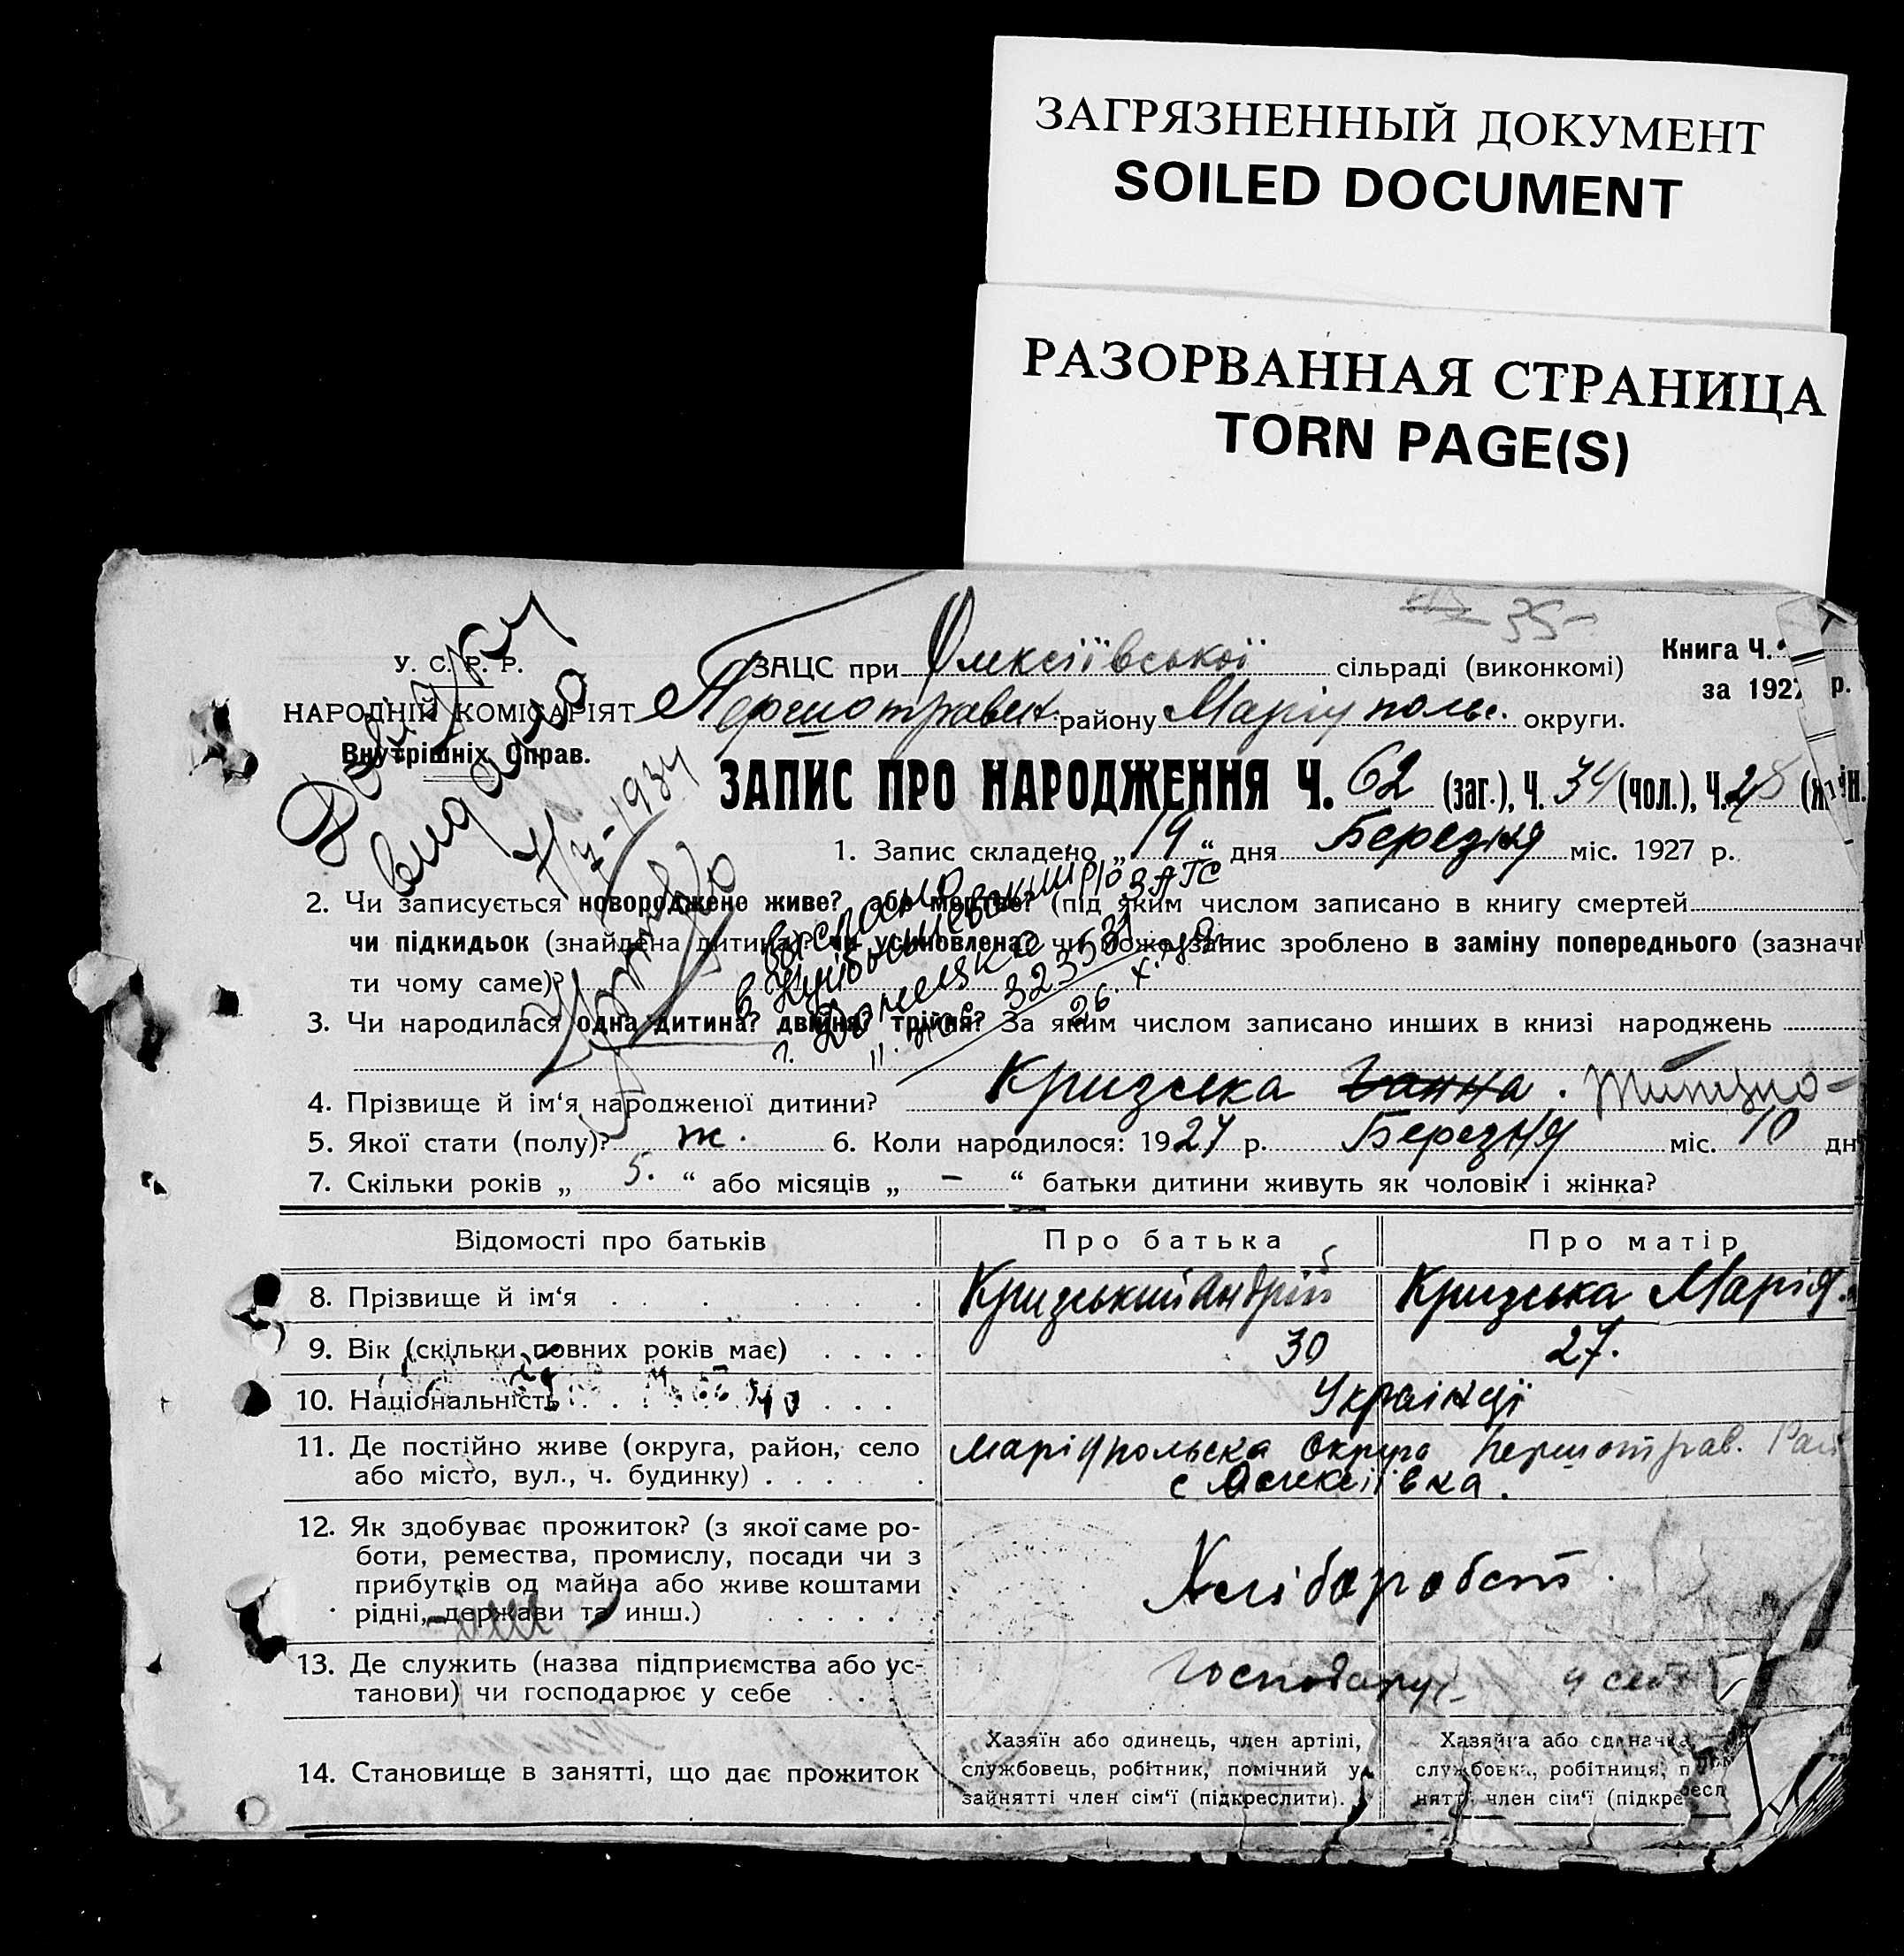 ЗАГРЯЗНЕННЫЙ ДОКУМЕНТ
SOILED DOCUMENT
РАЗОРВАННАЯ СТРАНИЦА
TORN PAGE(S)
35-
Довідку
видано
7/7-1934
У. С. Р. Р.
НАРОДНІЙ КОМІСАРІЯТ
Внутрішніх Справ.
ЗАЦС при Олексіївської сільраді (виконкомі)
Першотравен. районy Маріупольс. округи.
Книга Ч.
за 1927 р.
ЗАПИС ПРО НАРОДЖЕННЯ Ч. 62 (заг.), Ч. 34 (чол.), Ч. 28 (жін.
1. Запис складено „ 19 “ дня Березня міс. 1927 р.
2. Чи записується новороджене живе? або мертве? (під яким числом записано в книгу смертей
чи підкидьок (знайдена дитина)? чи усиновлена? чи може запис зроблено в заміну попереднього (зазначи
ти чому саме)?
выслано
в Куйбышевский р/о ЗАГС
г. Донецка
323531
26. X.
3. Чи народилася одна дитина? двійня? трійня? За яким числом записано инших в книзі народжень
4. Прізвище й ім‘я народженої дитини? Кризська Ганна.
5. Якої стати (полу)? ж. 6. Коли народилося: 1927 р. Березня міс. 10 дн
7. Скільки років „ 5. “ або місяців „ — “ батьки дитини живуть як чоловік і жінка?
Відомості про батьків Про батька Про матір
8. Прізвище й ім‘я . . . . . . . Кризський Андрій Кризська Марія.
9. Вік (скільки повних років має) . . . . 30 27.
10. Національність . . . . Українці
11. Де постійно живе (округа, район, село Маріюпольска Округа Першотрав. Рай
або місто, вул., ч. будинку) . . . . . с Олексіївка.
12. Як здобуває прожиток? (з якої саме ро-
боти, ремества, промислу, посади чи з
прибутків од майна або живе коштами
рідні, держави та инш.) . . . . . .
Хлібороби
13. Де служить (назва підприємства або ус-
танови) чи господарює у себе . . . Господарує у себе
14. Становище в занятті, що дає прожиток
Хазяїн або одинець, член артілі,
службовець, робітник, помічний у
зайнятті член сім‘ї (підкреслити).
Хазяйка або одиначка,
службовка, робітниця,
нятті член сім‘ї (підкресл